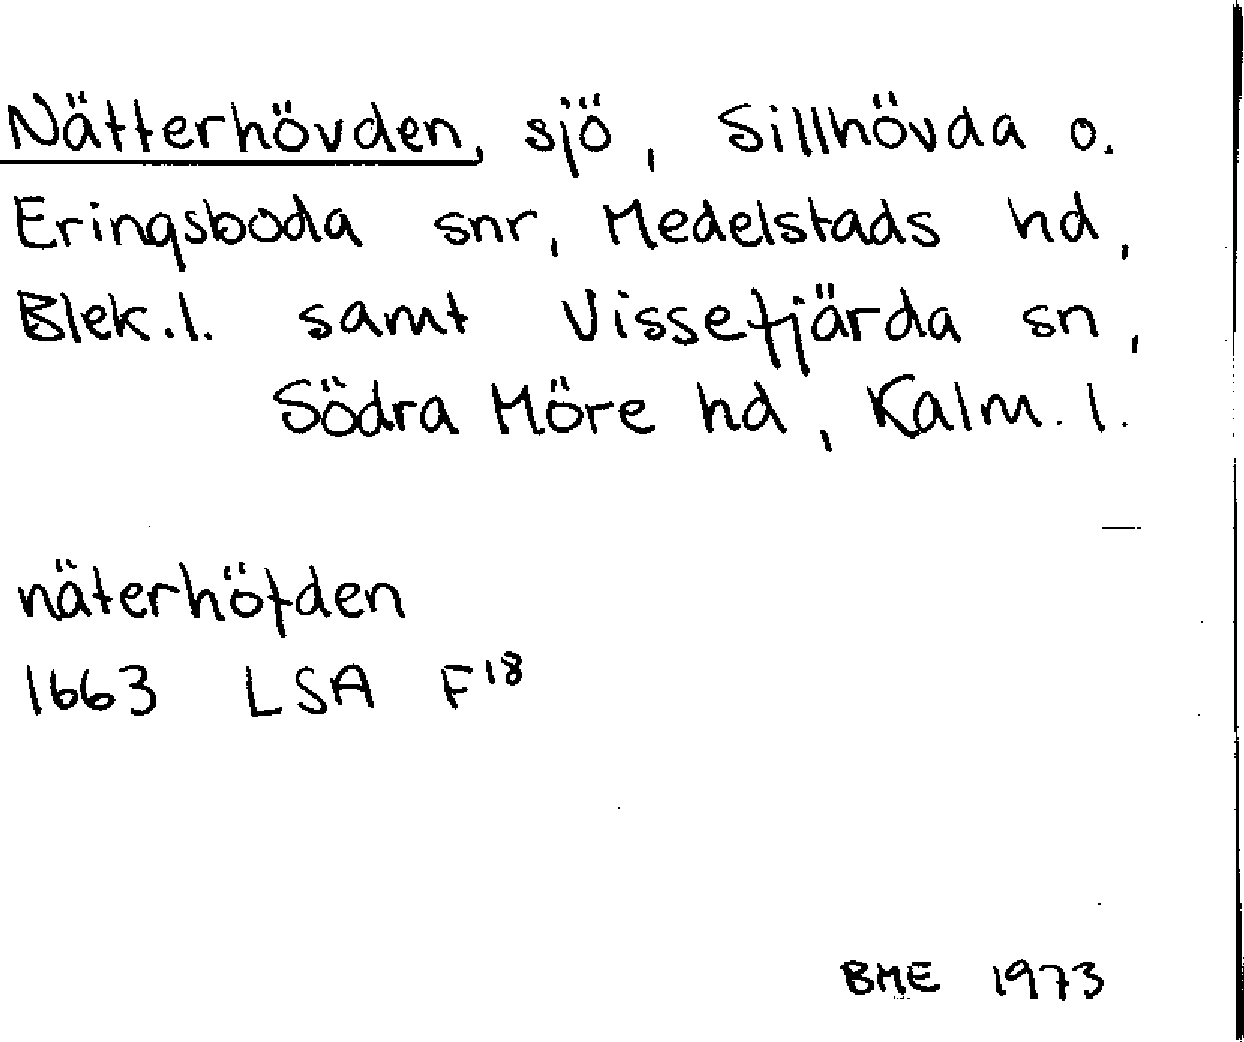 Nätterhövden, sjö, Sillhövda o.
Eringsboda snr, Medelstads hd,
Blek.l. samt Vissefjärda sn,
Södra Möre hd, Kalm. l.
näterhöfden
1663 LSA F18
BME 1973